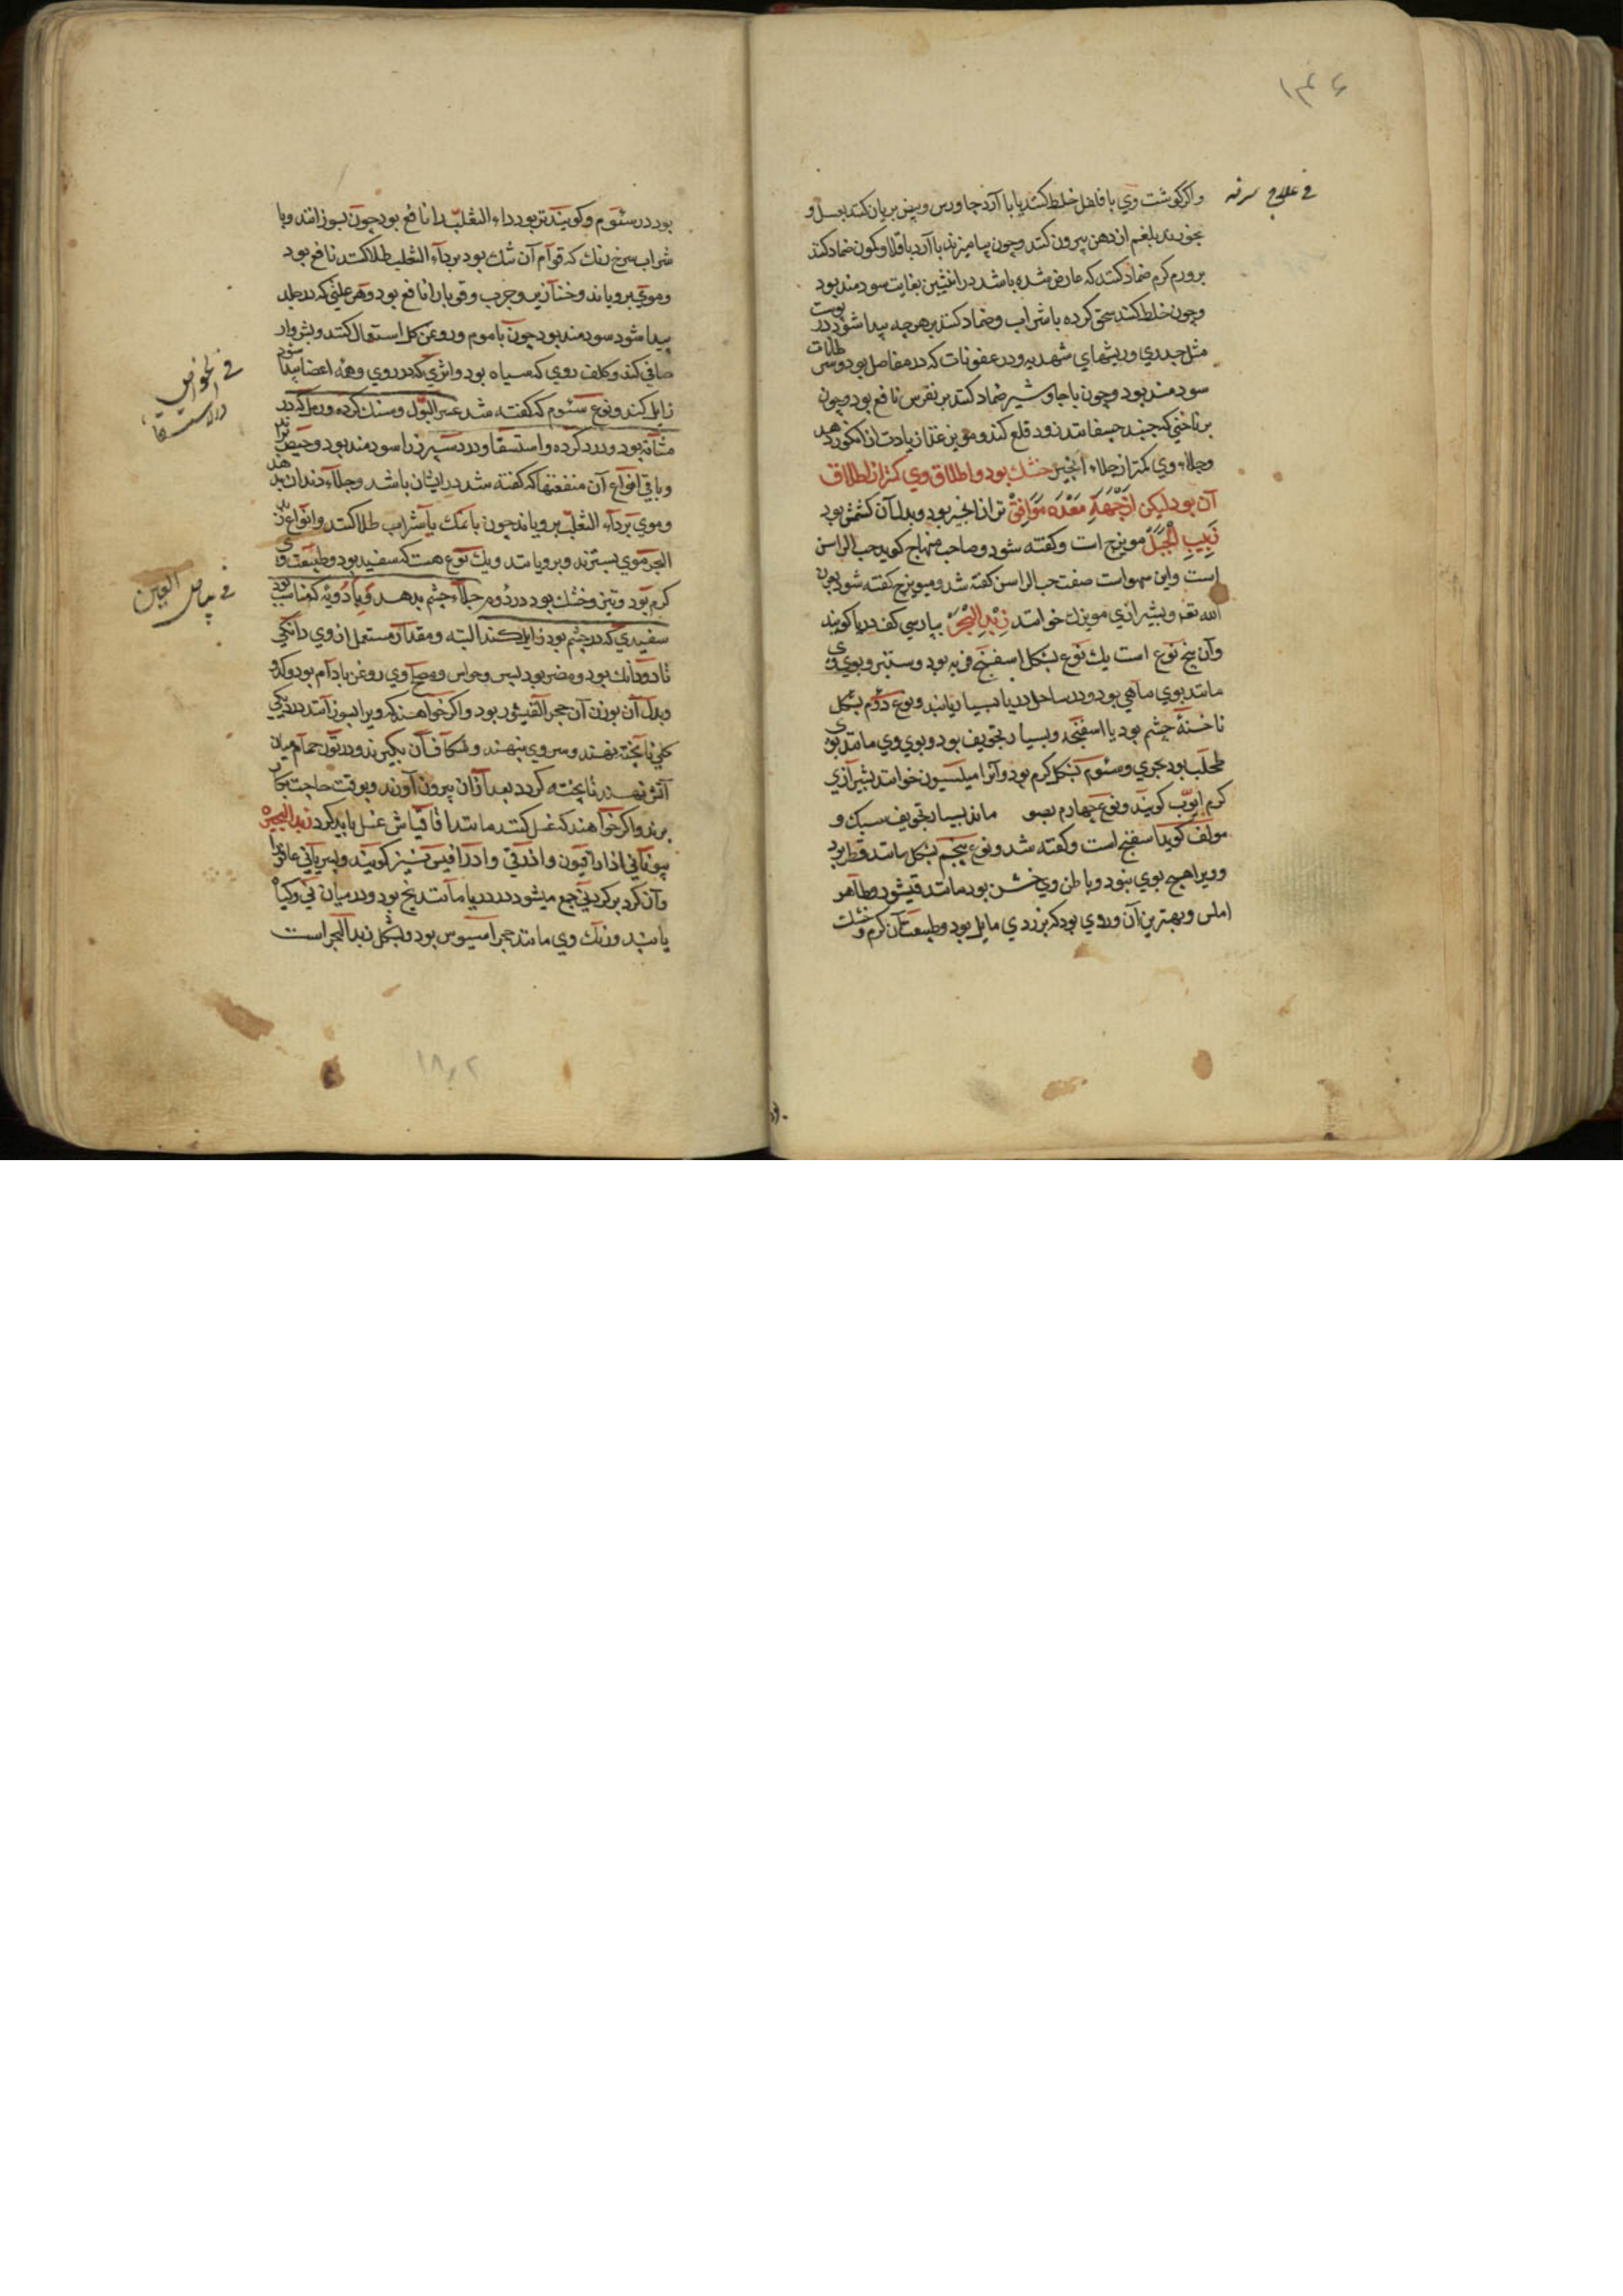 ۱۴۶
في علاج سرفه
واکر کوشت وي با فلفل خلط کنند یا با آرد جاورس وبیض بریان کنند بعسل و
بخورند بلغم از دهن بیرون کند وچون بیامیزند با آرد باقلا وکمون ضماد کنند
بر ورم کرم ضماد کنند که عارض شده باشد در انثیین بغایت سودمند بود
وچون خلط کنند سحق کرده با شراب وضماد کنند بر هرچه پیدا شود در پوست
مثل جدري وریشهاي شهدیه ودر عفونات که در مفاصل بود وسرطانات
سودمند بود وچون با جاوشیر ضماد کنند بر نقرس نافع بود وچون
بر ناخني که جنبد چسفانند زود قلع کند ومویز غذا زیادت از انکور دهد
وجلاء وي کمتر از جلاء انجیر خشك بود واطلاق وي کمتر از اطلاق
آن بود لیکن از جهة معده موافق تر از انجیر بود وبدل آن کشمش بود
زبیب الجبل مویزج است وکفته شود وصاحب منهاج کوید حب الراسن
است واین سهو است صفت حب الراسن کفته شد ومیویزج کفته شود بعون
الله تعه وبشیرازي مویزك خوانند زبد البحر بپارسي کف دریا کویند
وآن پنج نوع است یك نوع بشکل اسفنج فربه بود وستبر وبوي وي
مانند بوي ماهي بود ودر ساحل دریا بسیار یابند ونوع دوم بشکل
ناخنهٔ چشم بود یا اسفنجه وبسیار تجویف بود وبوي وي مانند بوي
طحلب بود بحري وسئوم بشکل کرم بود وآنرا میلیسیون خوانند بشیرازي
کرم ایوب کویند ونوع چهارم بصو ماند بسیار تجویف سبك و
مولف کوید اسفنج است وکفته شد ونوع پنجم بشکل مانند قطر بود
وویرا هیچ بوي نبود وباطن وي خشن بود مانند قیشور وظاهر
املس وبهترین آن وردي بود که بزردي مایل بود وطبیعت آن کرم وخشك
بود در سئوم وکویند تر بود داء الثعلب را نافع بود چون بسوزانند وبا
شراب سرخ رنك که قوام آن تنك بود بر داء الثعلب طلا کنند نافع بود
وموي برویاند وخنازیر وجرب وقوبا را نافع بود وهر علتي که در جلد
پیدا شود سودمند بود چون با موم وروغن کل استعمال کنند وبثر وار
صافي کند وکلف روي که سیاه بود واثري که در روي وهمه اعضا پیدا شود
زایل کند ونوع سئوم که کفته شد عسر البول وسنك کرده ورمل که در
مثانه بود ودرد کرده واستسقا ودرد سپرز را سودمند بود وحیض براند
وباقي انواع آن منفعتها که کفته شد در ایشان باشد وجلاء دندان بدهند
وموي بر داء الثعلب برویاند چون با نمك یا شراب طلا کنند وانواع زبد
البحر موي بسترند وبرویانند ویك نوع هست که سفید بود وطبیعت وي
کرم بود وتیز وخشك بود در دوم جلاء چشم بدهد وبا ادویه که مناسب بود
سفیدي که در چشم بود زایل کند البته ومقدار مستعمل از وي دانکي
تا دو دانك بود ومضر بود بسر وحواس ومصلح وي روغن بادام بود وکدو
وبدل آن بوزن آن حجر القیشور بود واکر خواهند که ویرا بسوزانند در دیکي
کلي ناپخته نهند وسر وي بنهند وشکاف آن بکیرند ودر تون حمام میان
آتش نهند تا پخته کردد بعد از آن بیرون آورند وبوقت حاجت بکار
برند واکر خواهند که غسل کنند مانند اقاقیاش غسل باید کرد زبد البحیره
بیوناني ادارافیون واذرقي وادرافیس نیز کویند وبسریاني عاقرا
وآن کرد بر کرد ني جمع میشود در دریا مانند یخ بود ودر میان ني وکیاه
یابند ورنك وي مانند حجر اسیوس بود وبشکل زبد البحر است
في الخواص
در استسقا
في بیاض العین
۱۸۰۲